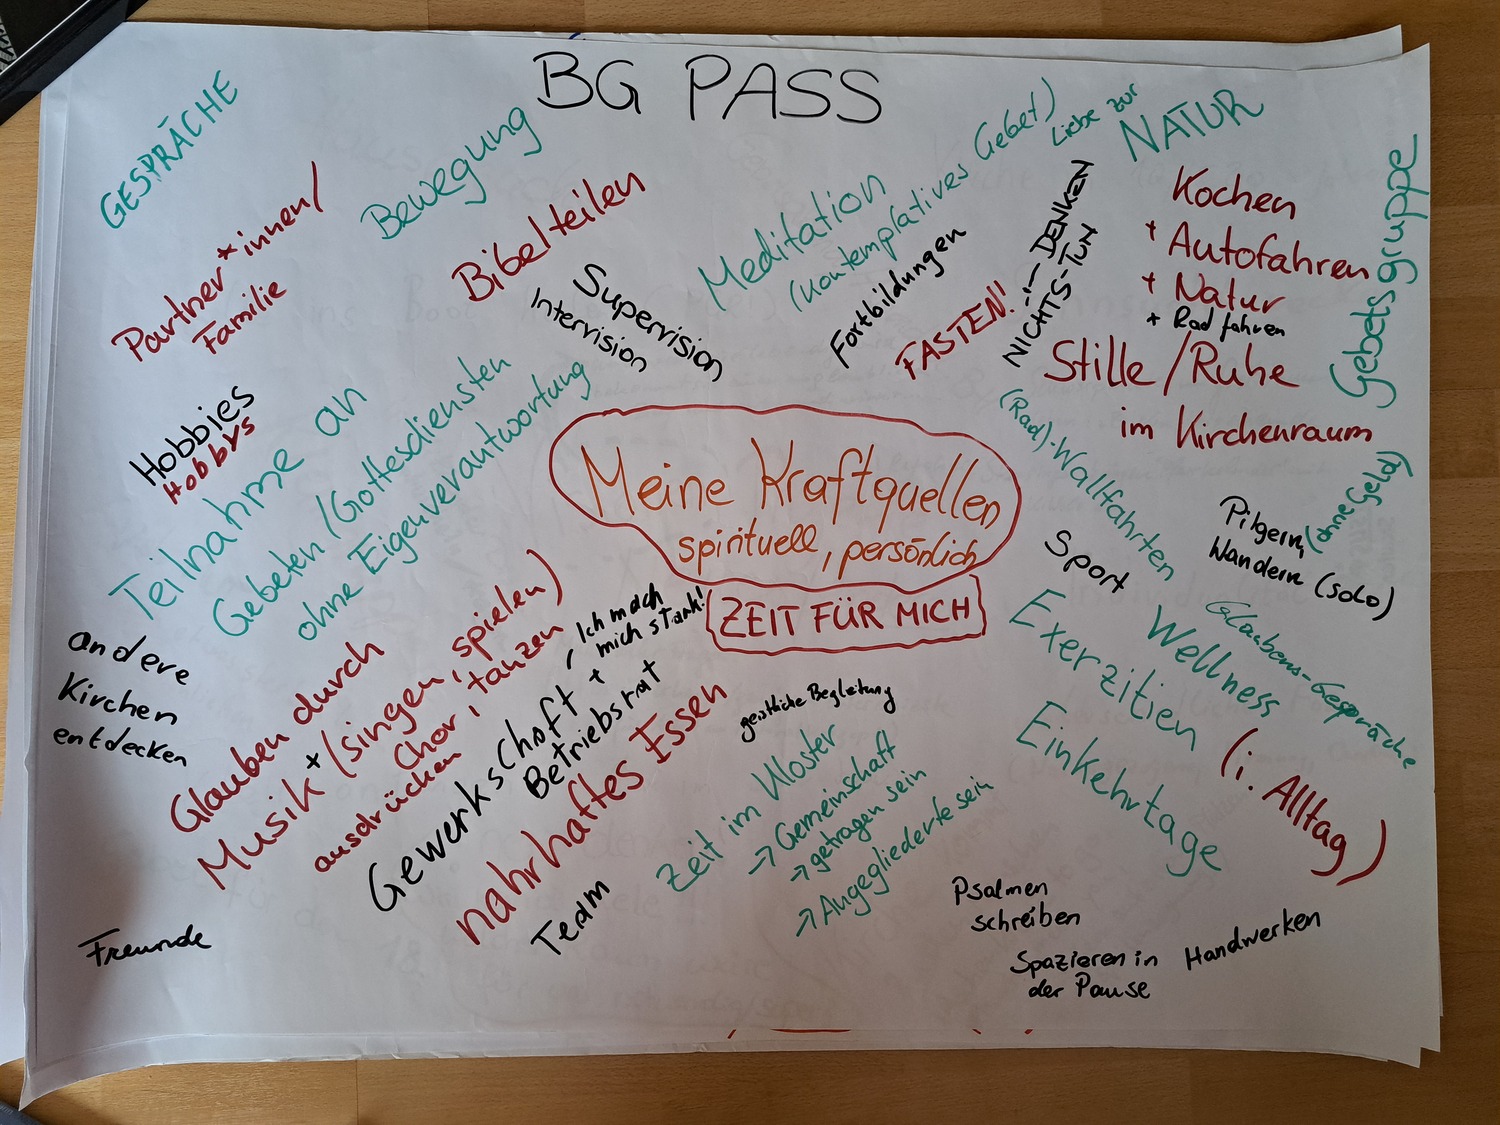 BG PASS
GESPRÄCHE
Partner*innen/
Familie
Bewegung
Bibelteilen
Supervision
Intervision
Meditation
(kontemplatives Gebet)
Liebe zur
NATUR
Fortbildungen
FASTEN!
NICHTS-TUN
-"- DENKEN
Kochen
+ Autofahren
+ Natur
+ Rad fahren
Stille/Ruhe
im Kirchenraum
Gebetsgruppe
Hobbies
Hobbys
Teilnahme an
Gebeten/Gottesdiensten
ohne Eigenverantwortung
Meine Kraftquellen
spirituell, persönlich
ZEIT FÜR MICH
(Rad)-Wallfahrten
Pilgern, (ohne Geld)
Wandern (solo)
Sport
Wellness
Glaubens-Gespräche
Exerzitien
(i. Alltag)
Einkehrtage
andere
Kirchen
entdecken
Glauben durch
Musik + (singen, spielen)
Chor, tanzen
ausdrücken
Gewerkschaft +
Betriebsrat
Ich mach
mich stark!
nahrhaftes Essen
Team
geistliche Begleitung
Zeit im Kloster
→ Gemeinschaft
→ getragen sein
→ Angegliederte sein
Freunde
Psalmen
schreiben
Spazieren in
der Pause
Handwerken